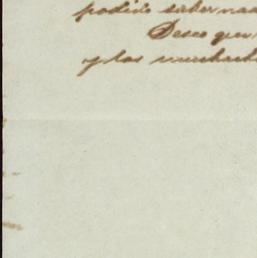 podido saber na
Deseo que
y los muchach